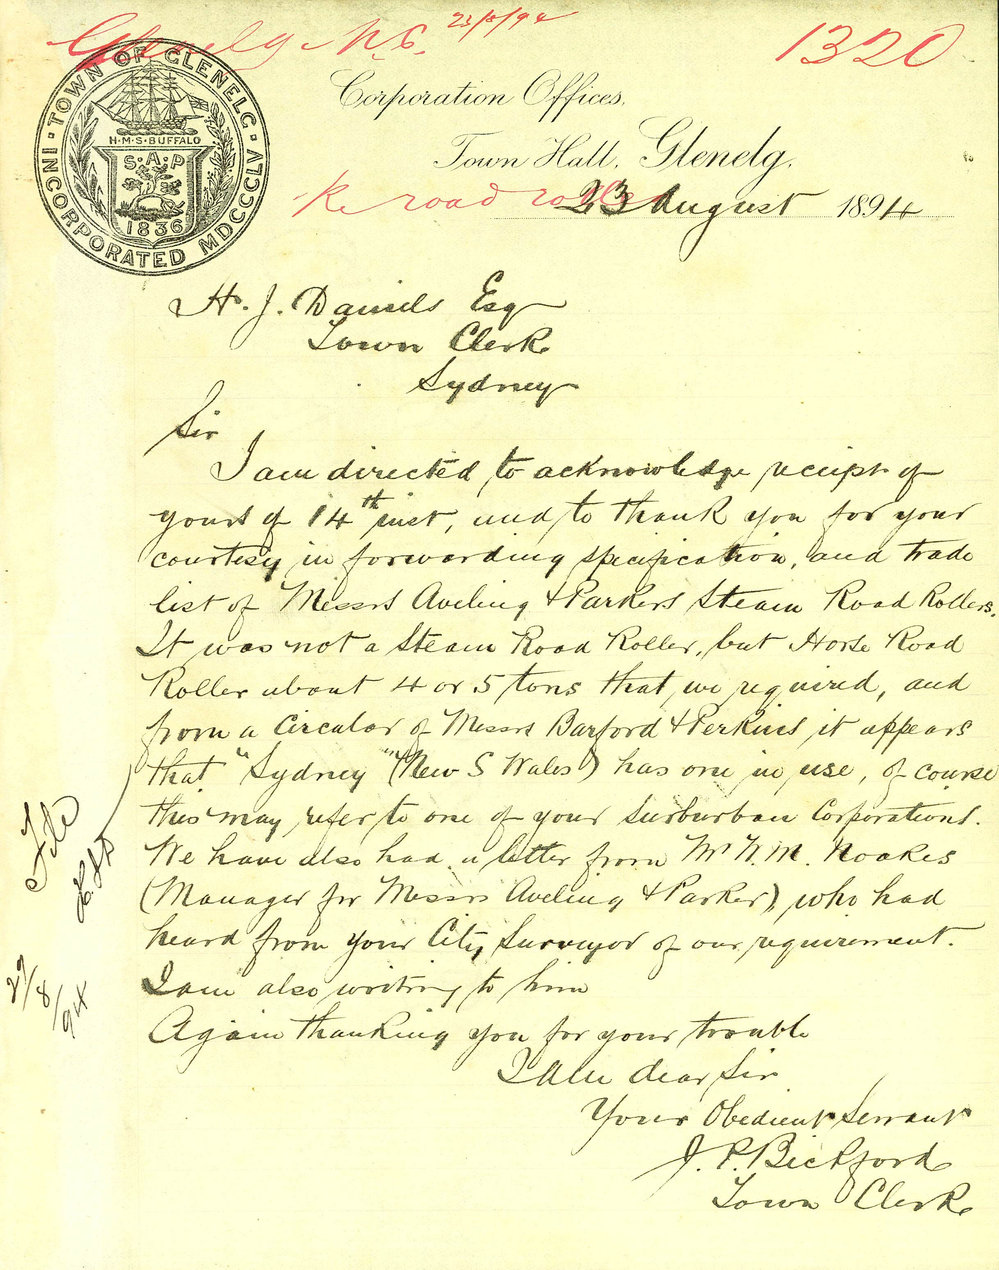 Glenelg M.C. 23/8/94
1320
TOWN OF GLENELG
INCORPORATED MDCCCLV
H.M.S. BUFFALO
S.A.P
1836
Corporation Offices,
Town Hall, Glenelg,
Re road roller
23 August 1894
H. J. Daniels Esq
Town Clerk
Sydney
Sir
I am directed to acknowledge receipt of
yours of 14th inst, and to thank you for your
courtesy in forwarding specification, and trade
list of Messrs Aveling & Parkers Steam Road Rollers.
It was not a Steam Road Roller, but Horse Road
Roller about 4 or 5 tons that we required, and
from a Circular of Messrs Barford & Perkins it appears
that "Sydney" (New S Wales) has one in use, of course
this may refer to one of your Surburban Corporations.
We have also had a letter from Mr W. M. Noakes
(Manager for Messrs Aveling & Parker) who had
heard from your City Surveyor of our requirement.
I am also writing to him
Again thanking you for your trouble
I am dear Sir
Your Obedient Servant
J. P. Bickford
Town Clerk
File
HJD
27/8/94